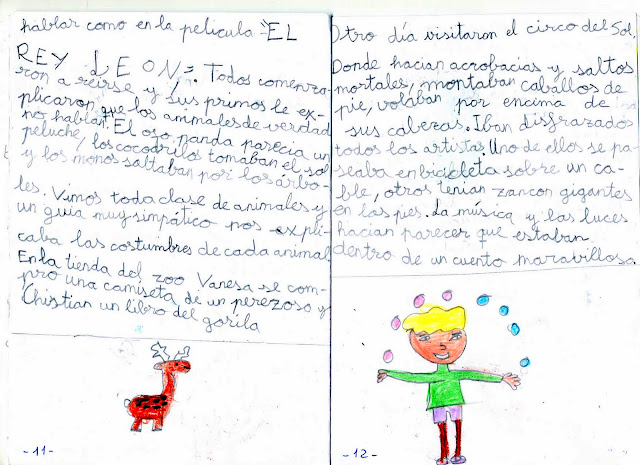 hablar como en la pelicula "EL
REY LEON". Todos comenza-
ron a reirse y sus primos le ex-
plicaron que los animales de verdad
no hablan. El oso panda parecia un
peluche, los cocodrilos tomaban el sol
y los monos saltaban por los árbo-
les. Vimos toda clase de animales y
un guia muy simpático nos expli-
caba las costumbres de cada animal
En la tienda del zoo Vanesa se com-
pró una camiseta de un perezoso y
Christian un libro del gorila
-11-
Otro día visitaron el circo del Sol.
Donde hacian acrobacias y saltos
mortales, montaban caballos de
pie, volaban por encima de
sus cabezas. Iban disfrazados
todos los artistas. Uno de ellos se pa-
seaba en bicicleta sobre un ca-
ble, otros tenian zancon gigantes
en los pies. La música y las luces
hacian parecer que estaban
dentro de un cuento maravilloso.
-12-